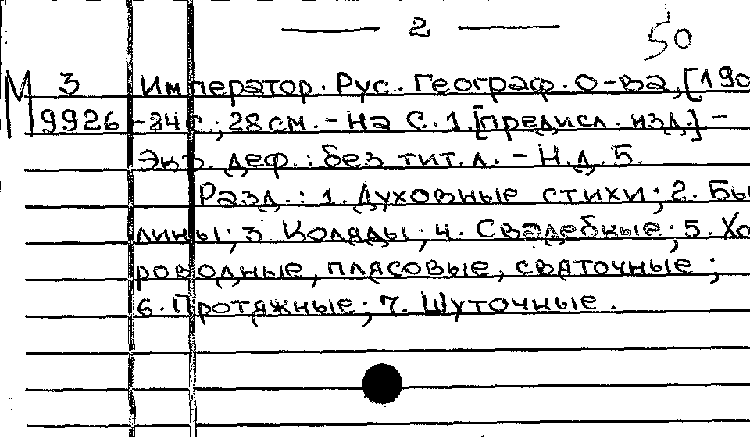 — 2 —
50
М 3 Император. Рус. Географ. О-ва, [190
9926 -24 с.; 28 см. - На с. 1. [предисл. изд.] -
Экз. деф.: без тит. л. - Н.д. 5.
Разд.: 1. Духовные стихи; 2. Бы
лины; 3. Коляды; 4. Свадебные; 5. Хо
роводные, плясовые, святочные;
6. Протяжные; 7. Шуточные.